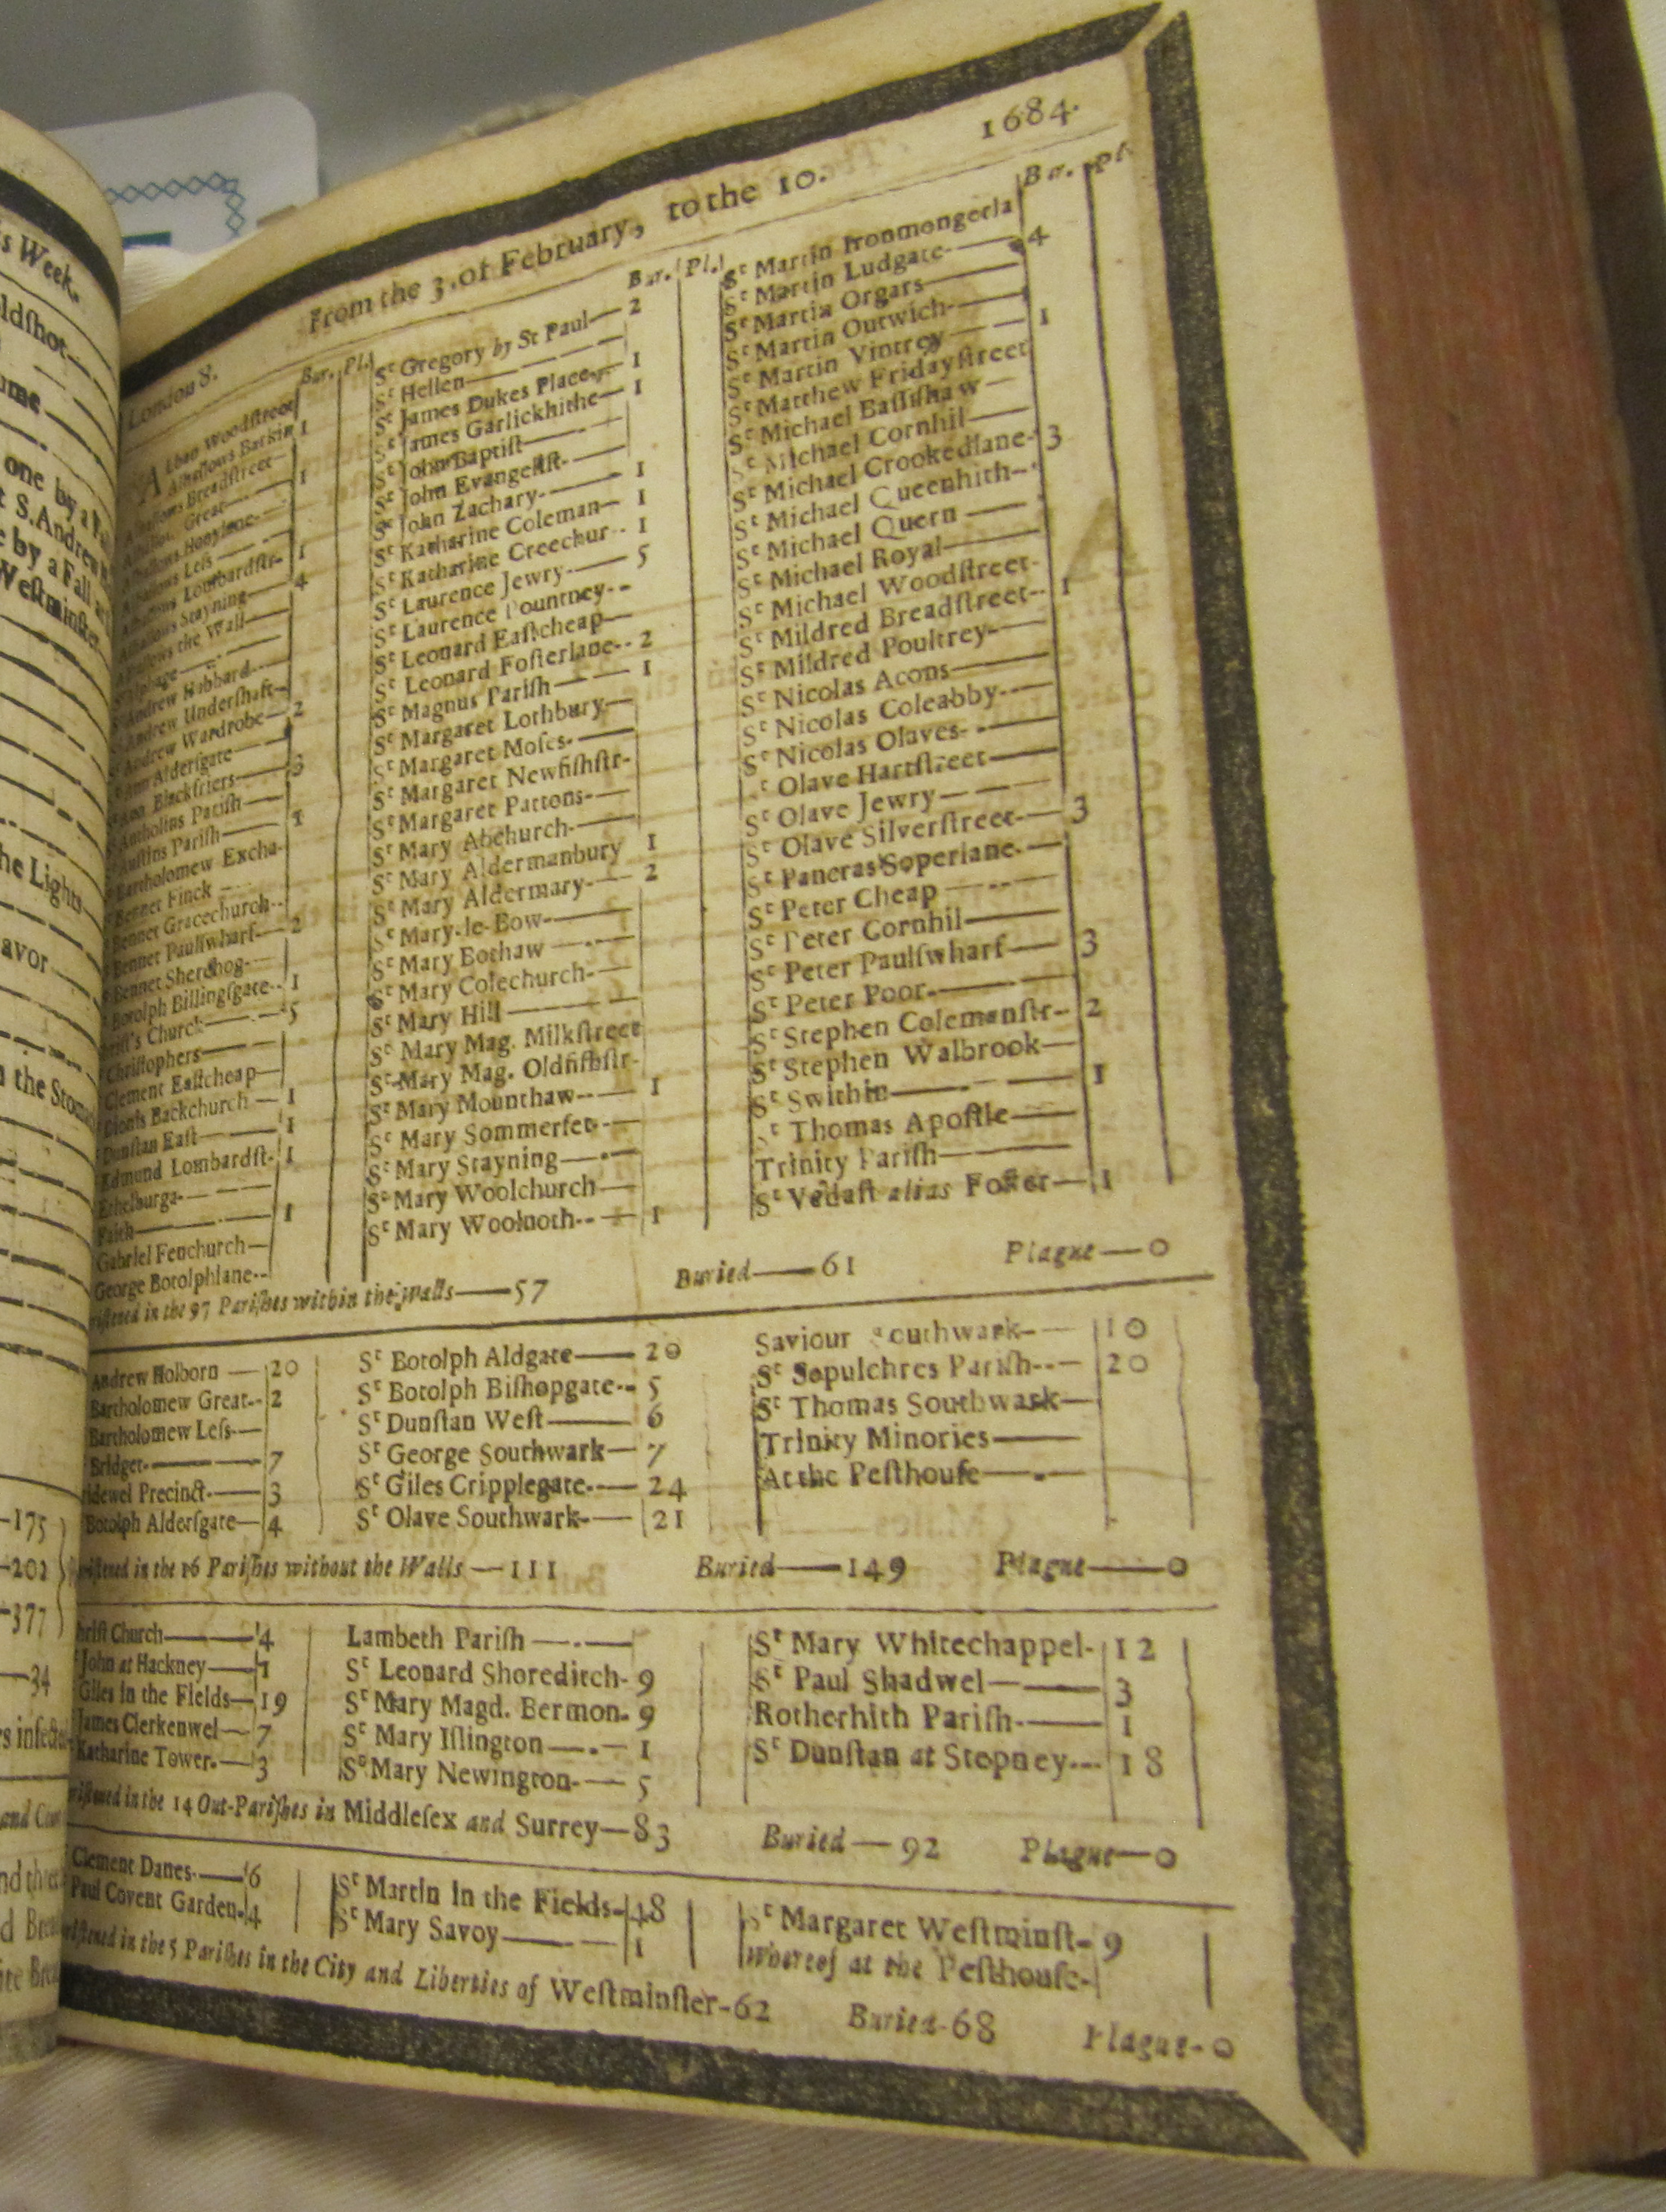 s Week.
ldſhot
ume
one by a
t S. Andrew
e by a Fall
Weſtminſter
he Lights
avor
n the Stomach
175
202
377
34
and
London 8. From the 3. of February, to the 10. 1684.
Bur. Pl.
ALban Woodſtreet
Alhallows Barkin 1
Alhallows Breadſtreet
Great 1
Alhallows Honylane
Alhallows Leſs
Alhallows Lombardſtr- 1
Alhallows Stayning 4
the Wall
Andrew Hubbard
Andrew Underſhaft
Andrew Wardrobe 2
Ann Alderſgate
Ann Blackfriers 3
Antholins Pariſh
Auſtins Pariſh 1
Bartholomew Excha-
Bennet Finck
Bennet Gracechurch
Bennet Paulſwharf 2
Bennet Sherehog
Botolph Billingſgate 1
Chriſt's Church 5
Chriſtophers
Clement Eaſtcheap
Dionis Backchurch 1
Dunſtan Eaſt 1
Edmund Lombardſt- 1
Ethelburga
Faith 1
Gabriel Fenchurch
George Botolphlane
Bur. Pl.
St Gregory by St Paul 2
St Hellen
St James Dukes Place 1
St James Garlickhithe 1
St John Baptiſt
St John Evangeliſt
St John Zachary 1
St Katharine Coleman 1
St Katharine Creechur 1
St Laurence Jewry 5
St Laurence Pountney
St Leonard Eaſtcheap
St Leonard Foſterlane 2
St Magnus Pariſh 1
St Margaret Lothbury
St Margaret Moſes
St Margaret Newfiſhſtr-
St Margaret Pattons
St Mary Abchurch
St Mary Aldermanbury 1
St Mary Aldermary 2
St Mary-le-Bow
St Mary Bothaw
St Mary Colechurch
St Mary Hill
St Mary Mag. Milkſtreet
St Mary Mag. Oldfiſhſtr-
St Mary Mounthaw 1
St Mary Sommerſet
St Mary Stayning
St Mary Woolchurch
St Mary Woolnoth 1
Bur. Pl.
St Martin Ironmongerla
St Martin Ludgate 4
St Martin Orgars
St Martin Outwich
St Martin Vintrey 1
St Matthew Fridayſtreet
St Michael Baſſiſhaw
St Michael Cornhil
St Michael Crookedlane 3
St Michael Queenhith
St Michael Quern
St Michael Royal
St Michael Woodſtreet
St Mildred Breadſtreet 1
St Mildred Poultrey
St Nicolas Acons
St Nicolas Coleabby
St Nicolas Olaves
St Olave Hartſtreet
St Olave Jewry
St Olave Silverſtreet 3
St Pancras Soperlane
St Peter Cheap
St Peter Cornhil
St Peter Paulſwharf 3
St Peter Poor
St Stephen Colemanſtr- 2
St Stephen Walbrook
St Swithin 1
St Thomas Apoſtle
Trinity Pariſh
St Vedaſt alias Foſter 1
in the 97 Pariſhes within the Walls 57 Buried 61 Plague 0
Andrew Holborn 20
Bartholomew Great 2
Bartholomew Leſs
Bridget 7
Precinct 3
Botolph Alderſgate 4
St Botolph Aldgate 20
St Botolph Biſhopgate 5
St Dunſtan Weſt 6
St George Southwark 7
St Giles Cripplegate 24
St Olave Southwark 21
Saviour Southwark 10
St Sepulchres Pariſh 20
St Thomas Southwark
Trinity Minories
At the Peſthouſe
in the 16 Pariſhes without the Walls 111 Buried 149 Plague 0
Church 4
John at Hackney 1
Giles in the Fields 19
James Clerkenwel 7
Katharine Tower 3
Lambeth Pariſh
St Leonard Shoreditch 9
St Mary Magd. Bermon. 9
St Mary Iſlington 1
St Mary Newington 5
St Mary Whitechappel 12
St Paul Shadwel 3
Rotherhith Pariſh 1
St Dunſtan at Stepney 18
in the 14 Out-Pariſhes in Middleſex and Surrey 83 Buried 92 Plague 0
Clement Danes 6
Paul Covent Garden 4
St Martin in the Fields 48
St Mary Savoy 1
St Margaret Weſtminſt- 9
Whereof at the Peſthouſe
in the 5 Pariſhes in the City and Liberties of Weſtminſter 62 Buried 68 Plague 0